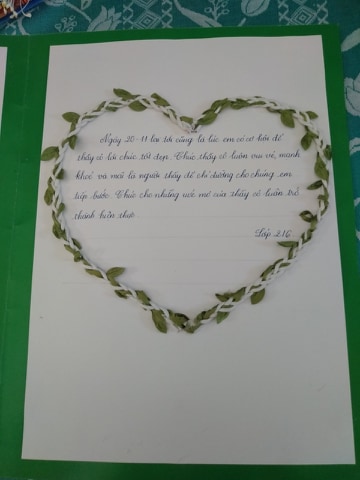 Ngày 20-11 lại tới cũng là lúc em có cơ hội để
thầy cô lời chúc tốt đẹp. Chúc thầy cô luôn vui vẻ, mạnh
khoẻ và mãi là người thầy để chỉ đường cho chúng em
tiếp bước. Chúc cho những ước mơ của thầy cô luôn trở
thành hiện thực.
Lớp 2/6